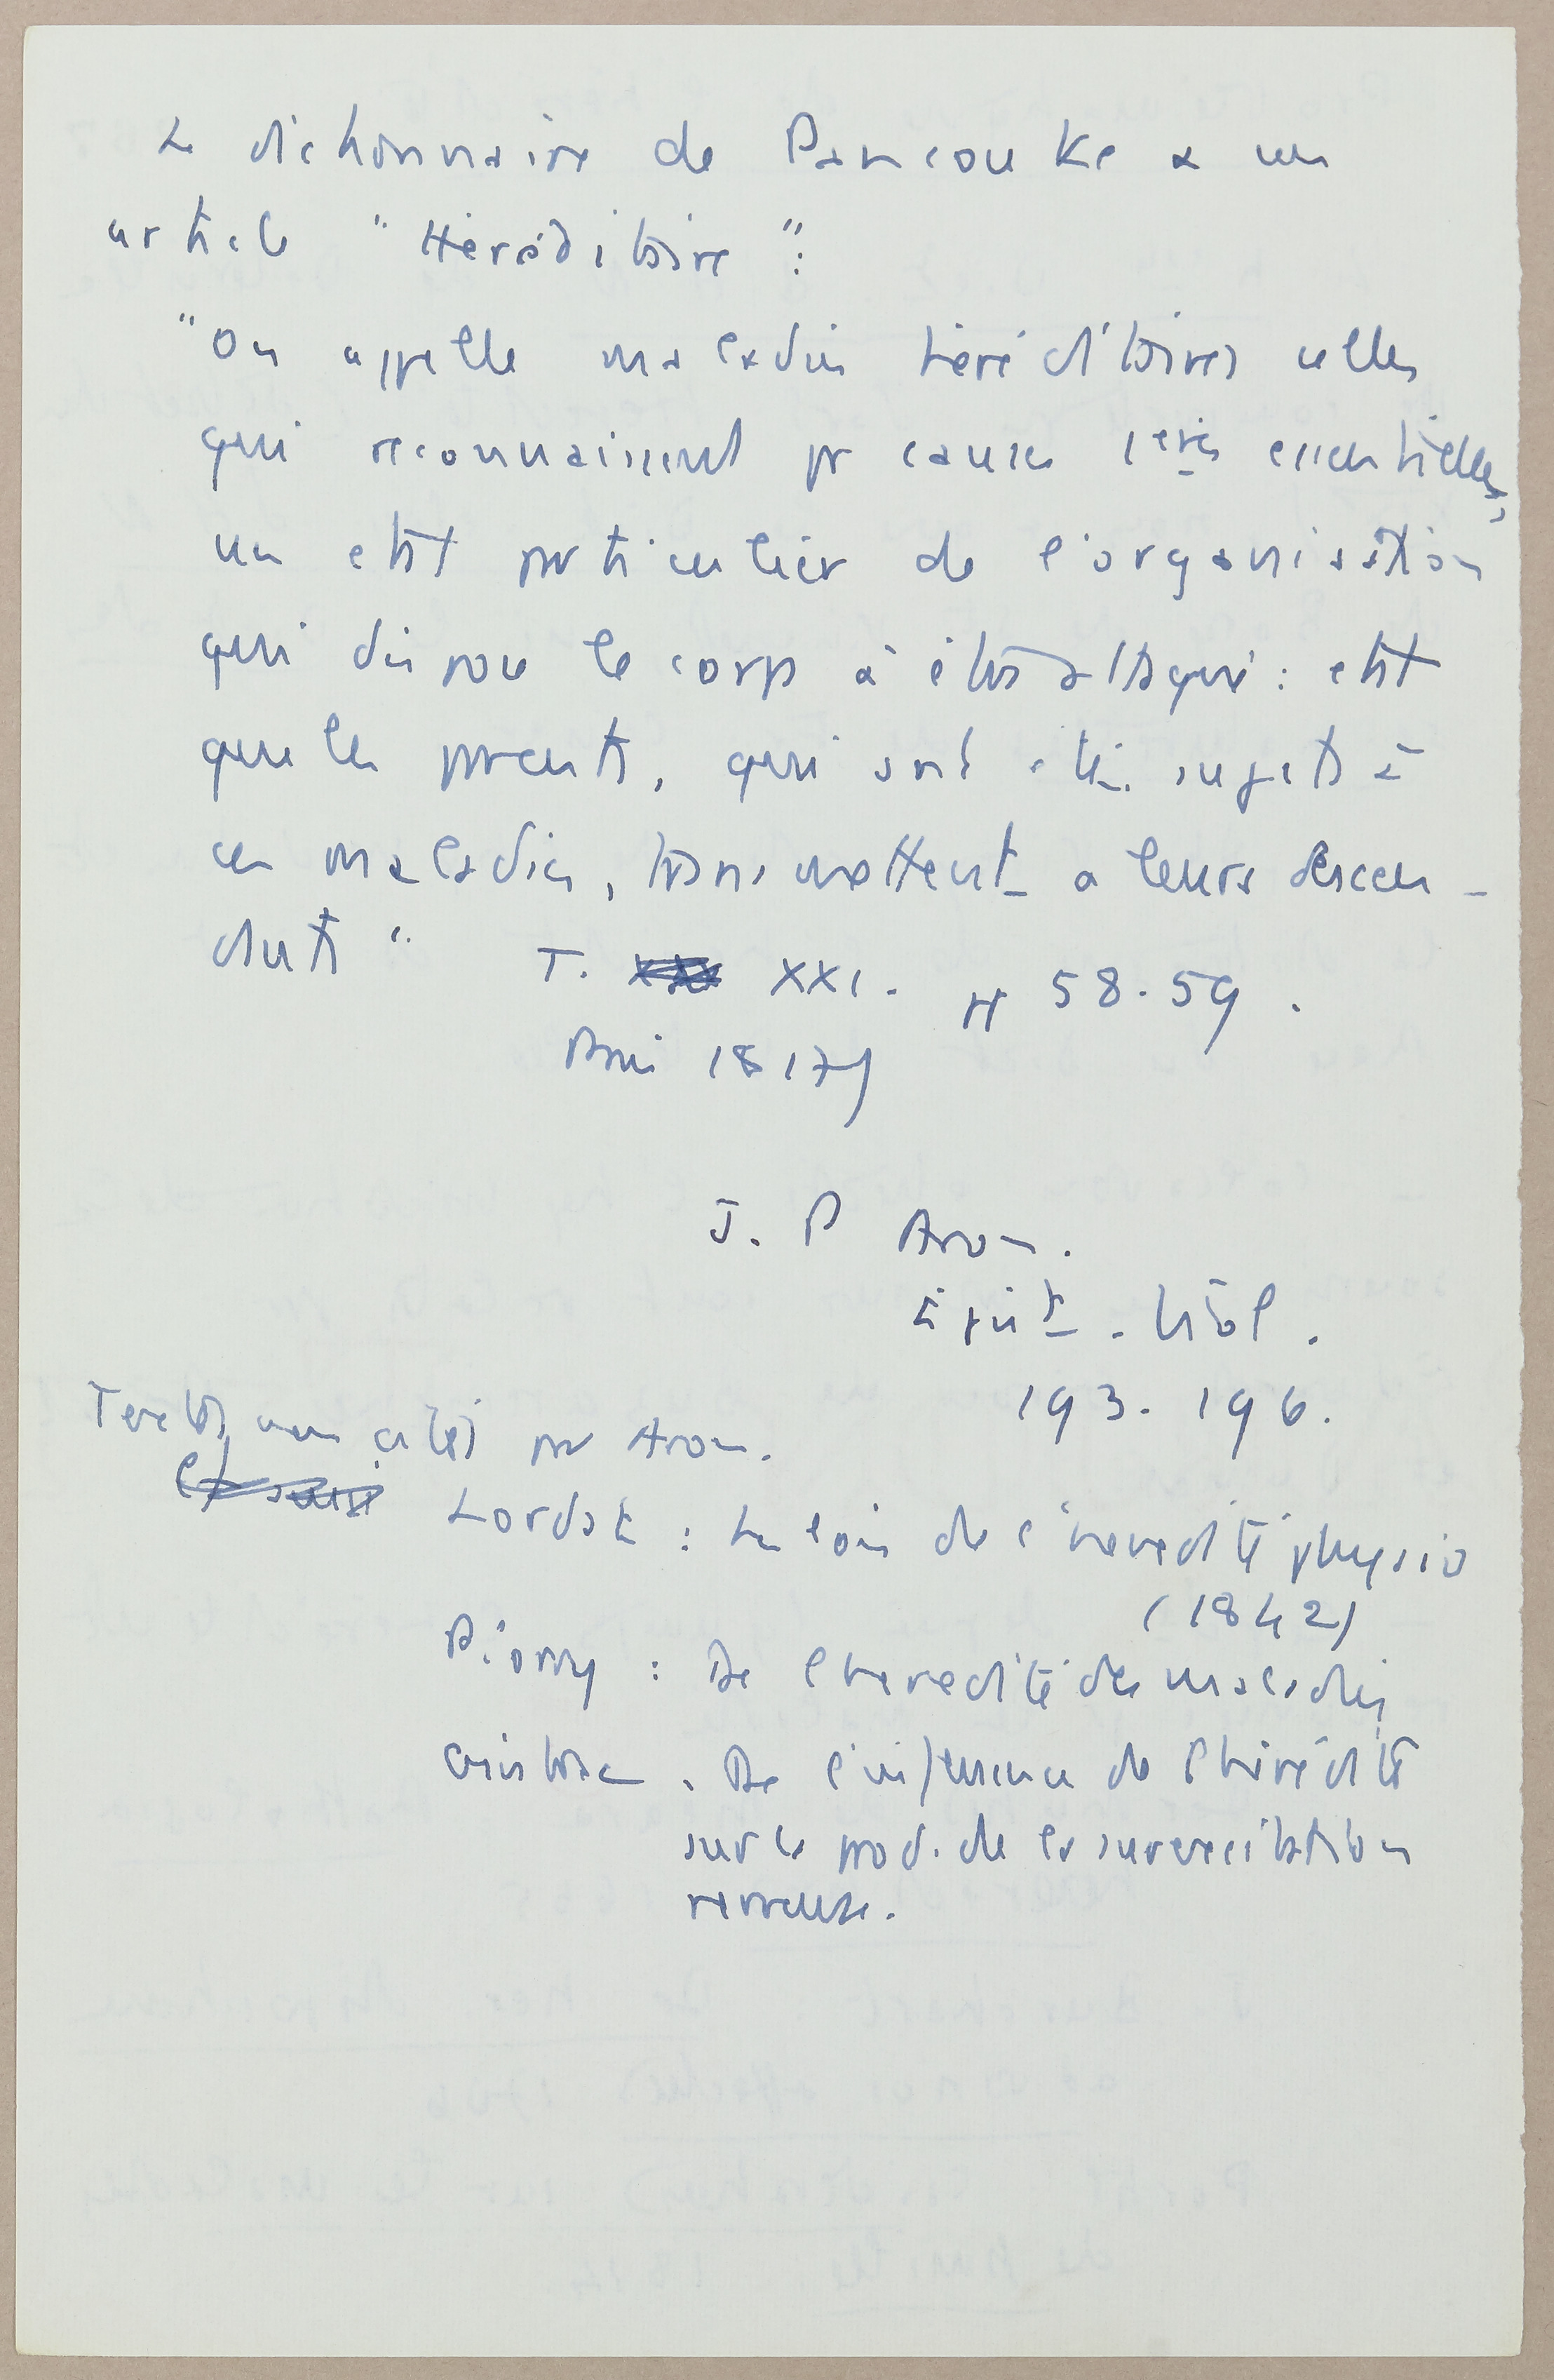 Le dictionnaire de Pancouke a un
article "Héréditaire":
"On appelle maladies héréditaires celles
qui reconnaissent pr causes 1ères essentielles,
un etat particulier de l'organisation
qui dispose le corps à être attaqué : etat
que les parents, qui ont été sujets à
ces maladies, transmettent a leurs descen-
dants" T. XXI. pp 58.59.
Paris 1817)
J. P Aron.
193. 196.
Textes cités par Aron.
Lordat : Les lois de l'heredité physio
(1842)
Piorry : De l'heredité des maladies
. De l'influence de l'hérédité
sur la prod. de la surexcitation
nerveuse.